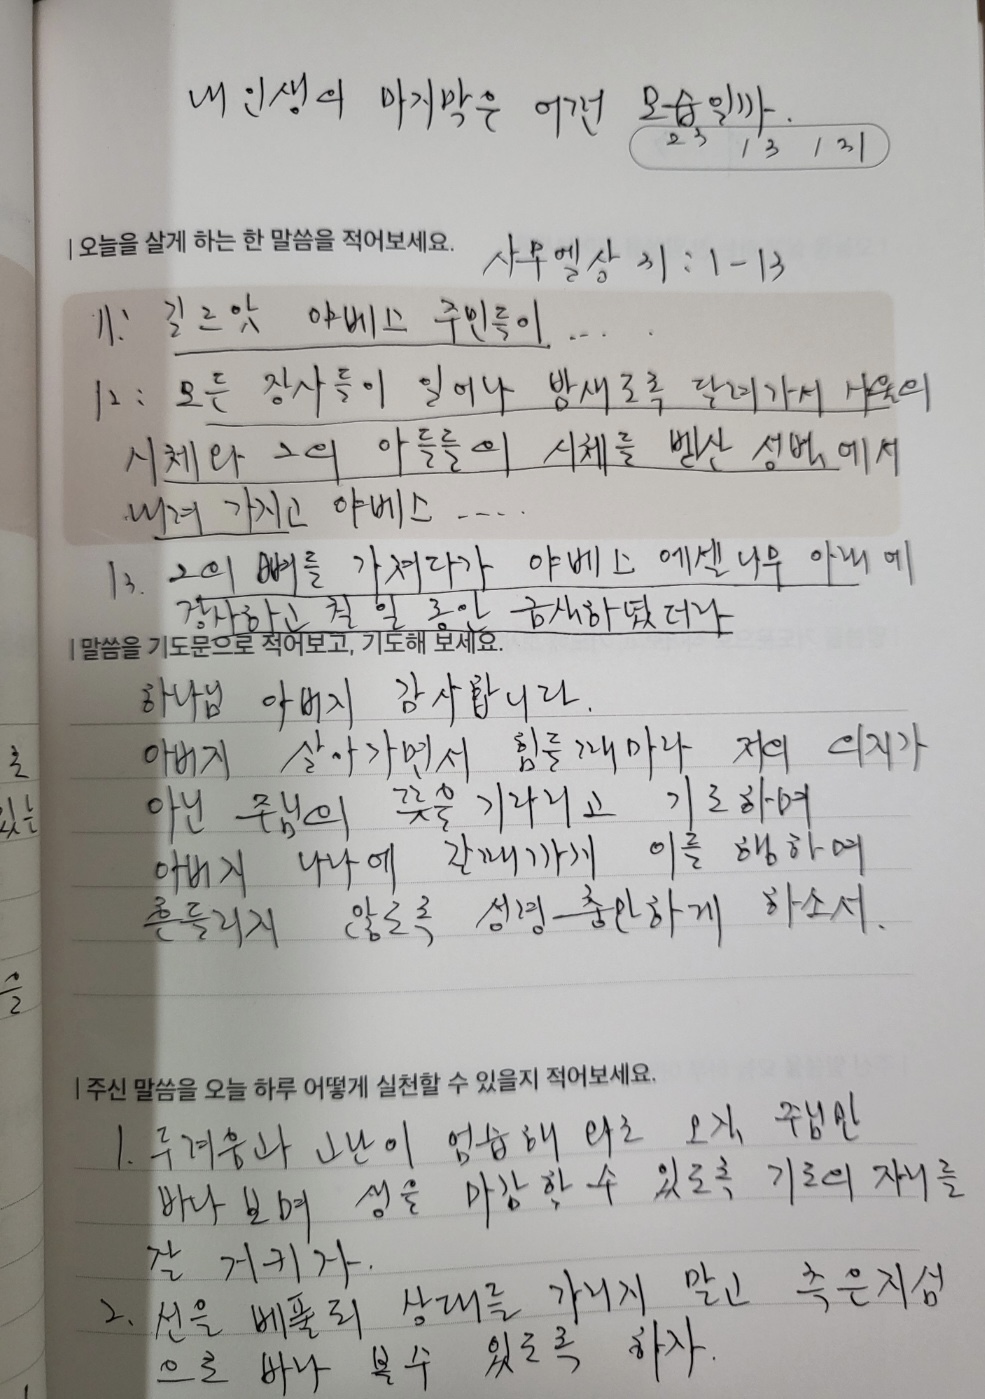 내 인생의 마지막은 어떤 모습일까.
23 1 31
| 오늘을 살게 하는 한 말씀을 적어보세요.
사무엘상 31 : 1 - 13
11: 길르앗 야베스 주민들이 ....
12: 모든 장사들이 일어나 밤새도록 달려가서 사울의
시체와 그의 아들들의 시체를 벧산 성벽에서
내려 가지고 야베스 .....
13. 그의 뼈를 가져다가 야베스 에셀나무 아래에
장사하고 칠 일 동안 금식하였더라
| 말씀을 기도문으로 적어보고, 기도해 보세요.
하나님 아버지 감사합니다.
아버지 살아가면서 힘들때마다 저의 의지가
아닌 주님의 뜻을 기다리고 기도하며
아버지 나라에 갈때까지 이를 행하며
흔들리지 않도록 성령충만하게 하소서.
| 주신 말씀을 오늘 하루 어떻게 실천할 수 있을지 적어보세요.
1. 두려움과 고난이 엄습해 와도 오직 주님만
바라 보며 생을 마감할 수 있도록 기도의 자리를
잘 지키자.
2. 선을 베풀되 상대를 가리지 말고 측은지심
으로 바라 볼수 있도록 하자.
로
있는
을